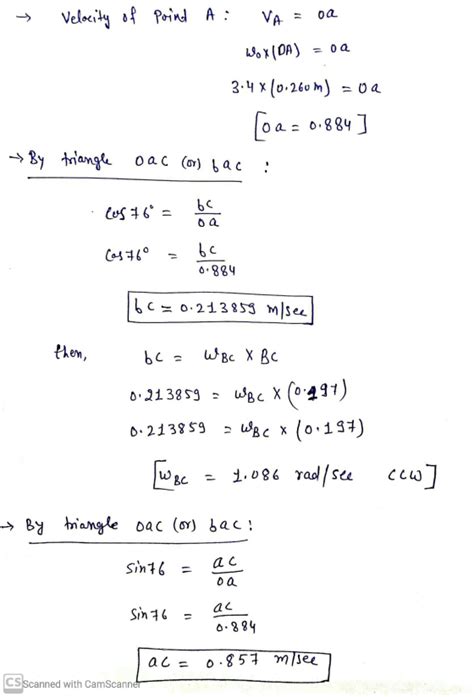 → Velocity of Poind A : VA = oa
WO×(OA) = oa
3.4×(0.260m) = oa
[oa = 0.884]
→ By triangle oac (or) bac :
cos76° = bc/oa
cos76° = bc/0.884
bc = 0.213859 m/sec
then, bc = WBC × BC
0.213859 = WBC × (0.197)
0.213859 = WBC × (0.197)
[WBC = 1.086 rad/sec CCW]
→ By triangle oac (or) bac :
sin76 = ac/oa
sin76 = ac/0.884
ac = 0.857 m/sec
CS Scanned with CamScanner